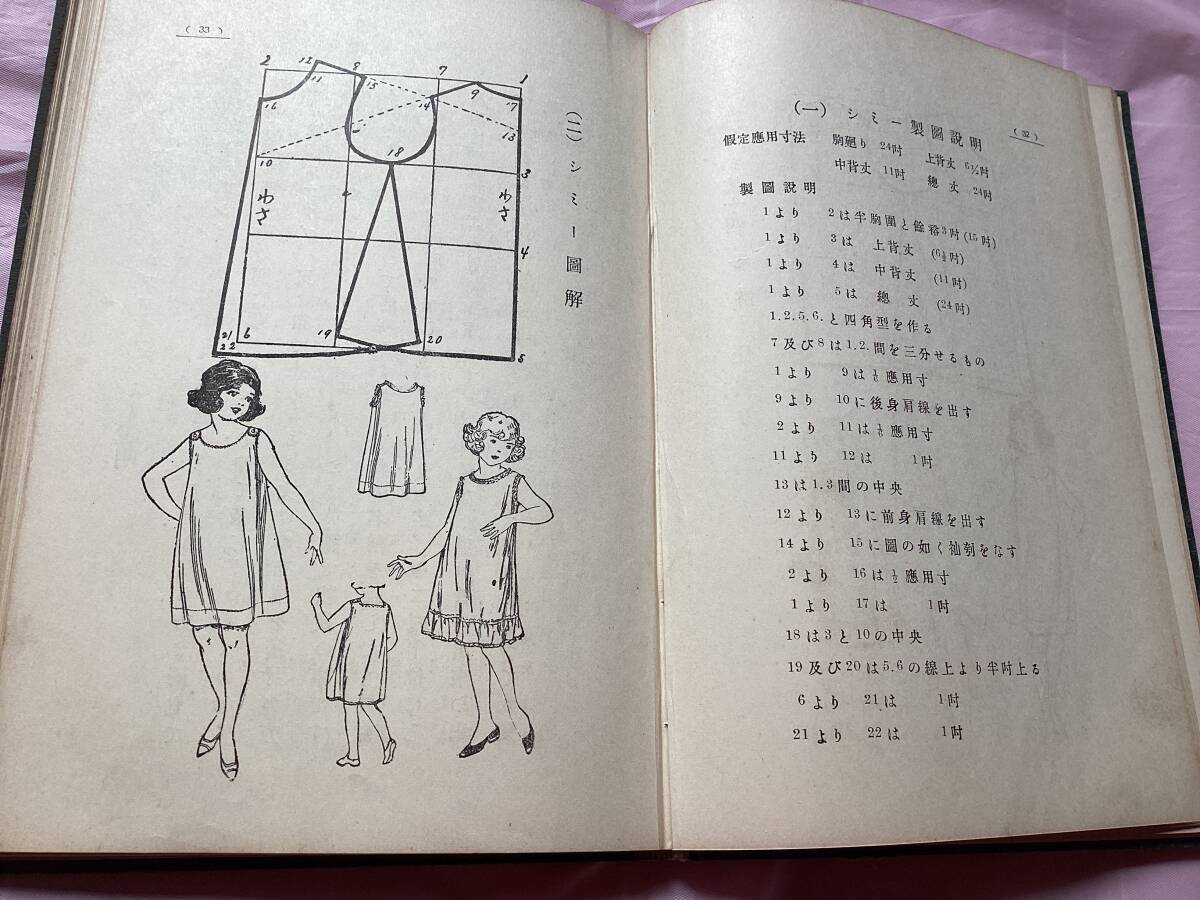 ( 32 )
(一) シミー製圖說明
假定應用寸法 胸廻り 24吋 上背丈 6½吋
中背丈 11吋 總丈 24吋
製圖說明
1より 2は半胸圍と餘裕3吋(15吋)
1より 3は 上背丈 (6½吋)
1より 4は 中背丈 (11吋)
1より 5は 總丈 (24吋)
1.2.5.6.と四角型を作る
7及び8は1.2.間を三分せるもの
1より 9は 應用寸
9より 10に後身肩線を出す
2より 11は 應用寸
11より 12は 1吋
13は1.3間の中央
12より 13に前身肩線を出す
14より 15に圖の如く袖刳をなす
2より 16は½應用寸
1より 17は 1吋
18は3と10の中央
19及び20は5.6の線上より半吋上る
6より 21は 1吋
21より 22は 1吋
( 33 )
(二) シミー圖解
2 12 8 7 1
11 15 9
16 14 17
13
10 18 3
わさ わさ
4
21 6 19 20
22 5